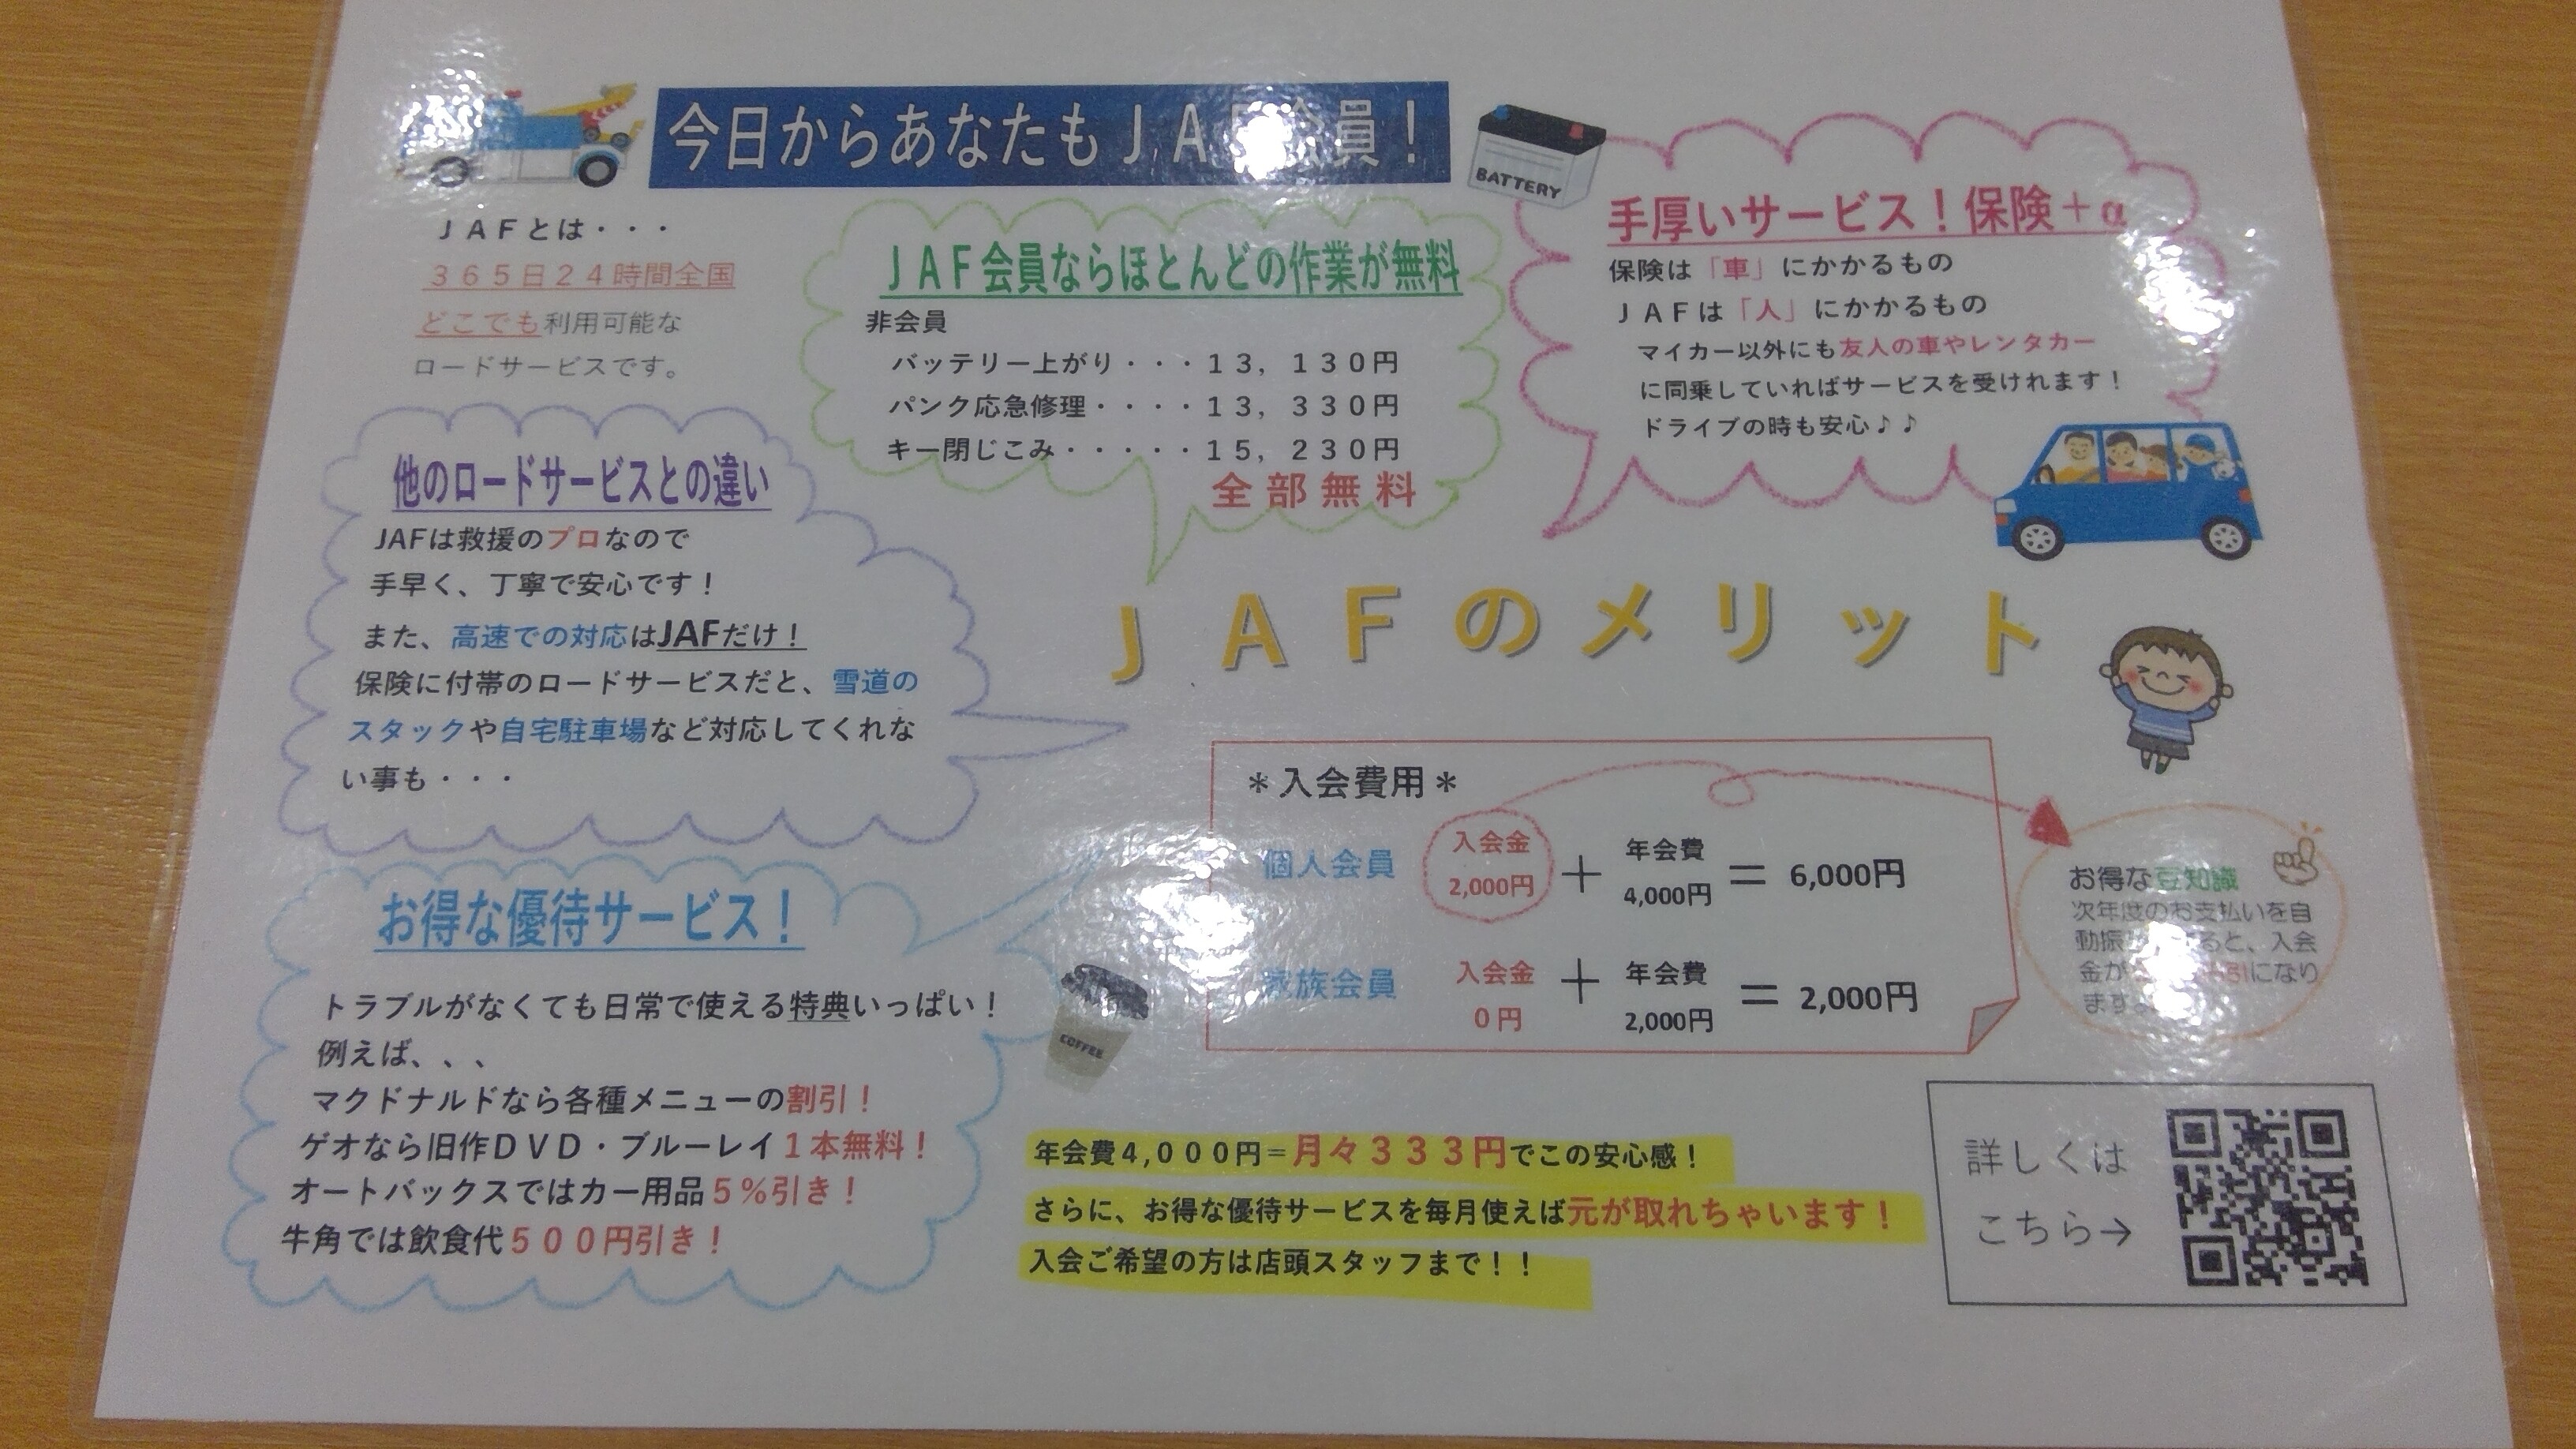 今日からあなたもＪＡＦ会員！
ＪＡＦとは・・・
３６５日２４時間全国
どこでも利用可能な
ロードサービスです。
BATTERY
ＪＡＦ会員ならほとんどの作業が無料
非会員
バッテリー上がり・・・１３，１３０円
パンク応急修理・・・・１３，３３０円
キー閉じこみ・・・・・１５，２３０円
全部無料
手厚いサービス！保険＋α
保険は「車」にかかるもの
ＪＡＦは「人」にかかるもの
マイカー以外にも友人の車やレンタカー
に同乗していればサービスを受けれます！
ドライブの時も安心♪♪
他のロードサービスとの違い
JAFは救援のプロなので
手早く、丁寧で安心です！
また、高速での対応はJAFだけ！
保険に付帯のロードサービスだと、雪道の
スタックや自宅駐車場など対応してくれな
い事も・・・
ＪＡＦのメリット
＊入会費用＊
個人会員 入会金 2,000円 ＋ 年会費 4,000円 ＝ 6,000円
家族会員 入会金 ０円 ＋ 年会費 2,000円 ＝ 2,000円
お得な豆知識
次年度のお支払いを自
動振 ると、入会
金が 引になり
ます
お得な優待サービス！
トラブルがなくても日常で使える特典いっぱい！
例えば、、、
マクドナルドなら各種メニューの割引！
ゲオなら旧作ＤＶＤ・ブルーレイ１本無料！
オートバックスではカー用品５％引き！
牛角では飲食代５００円引き！
COFFEE
年会費４,０００円＝月々３３３円でこの安心感！
さらに、お得な優待サービスを毎月使えば元が取れちゃいます！
入会ご希望の方は店頭スタッフまで！！
詳しくは
こちら→